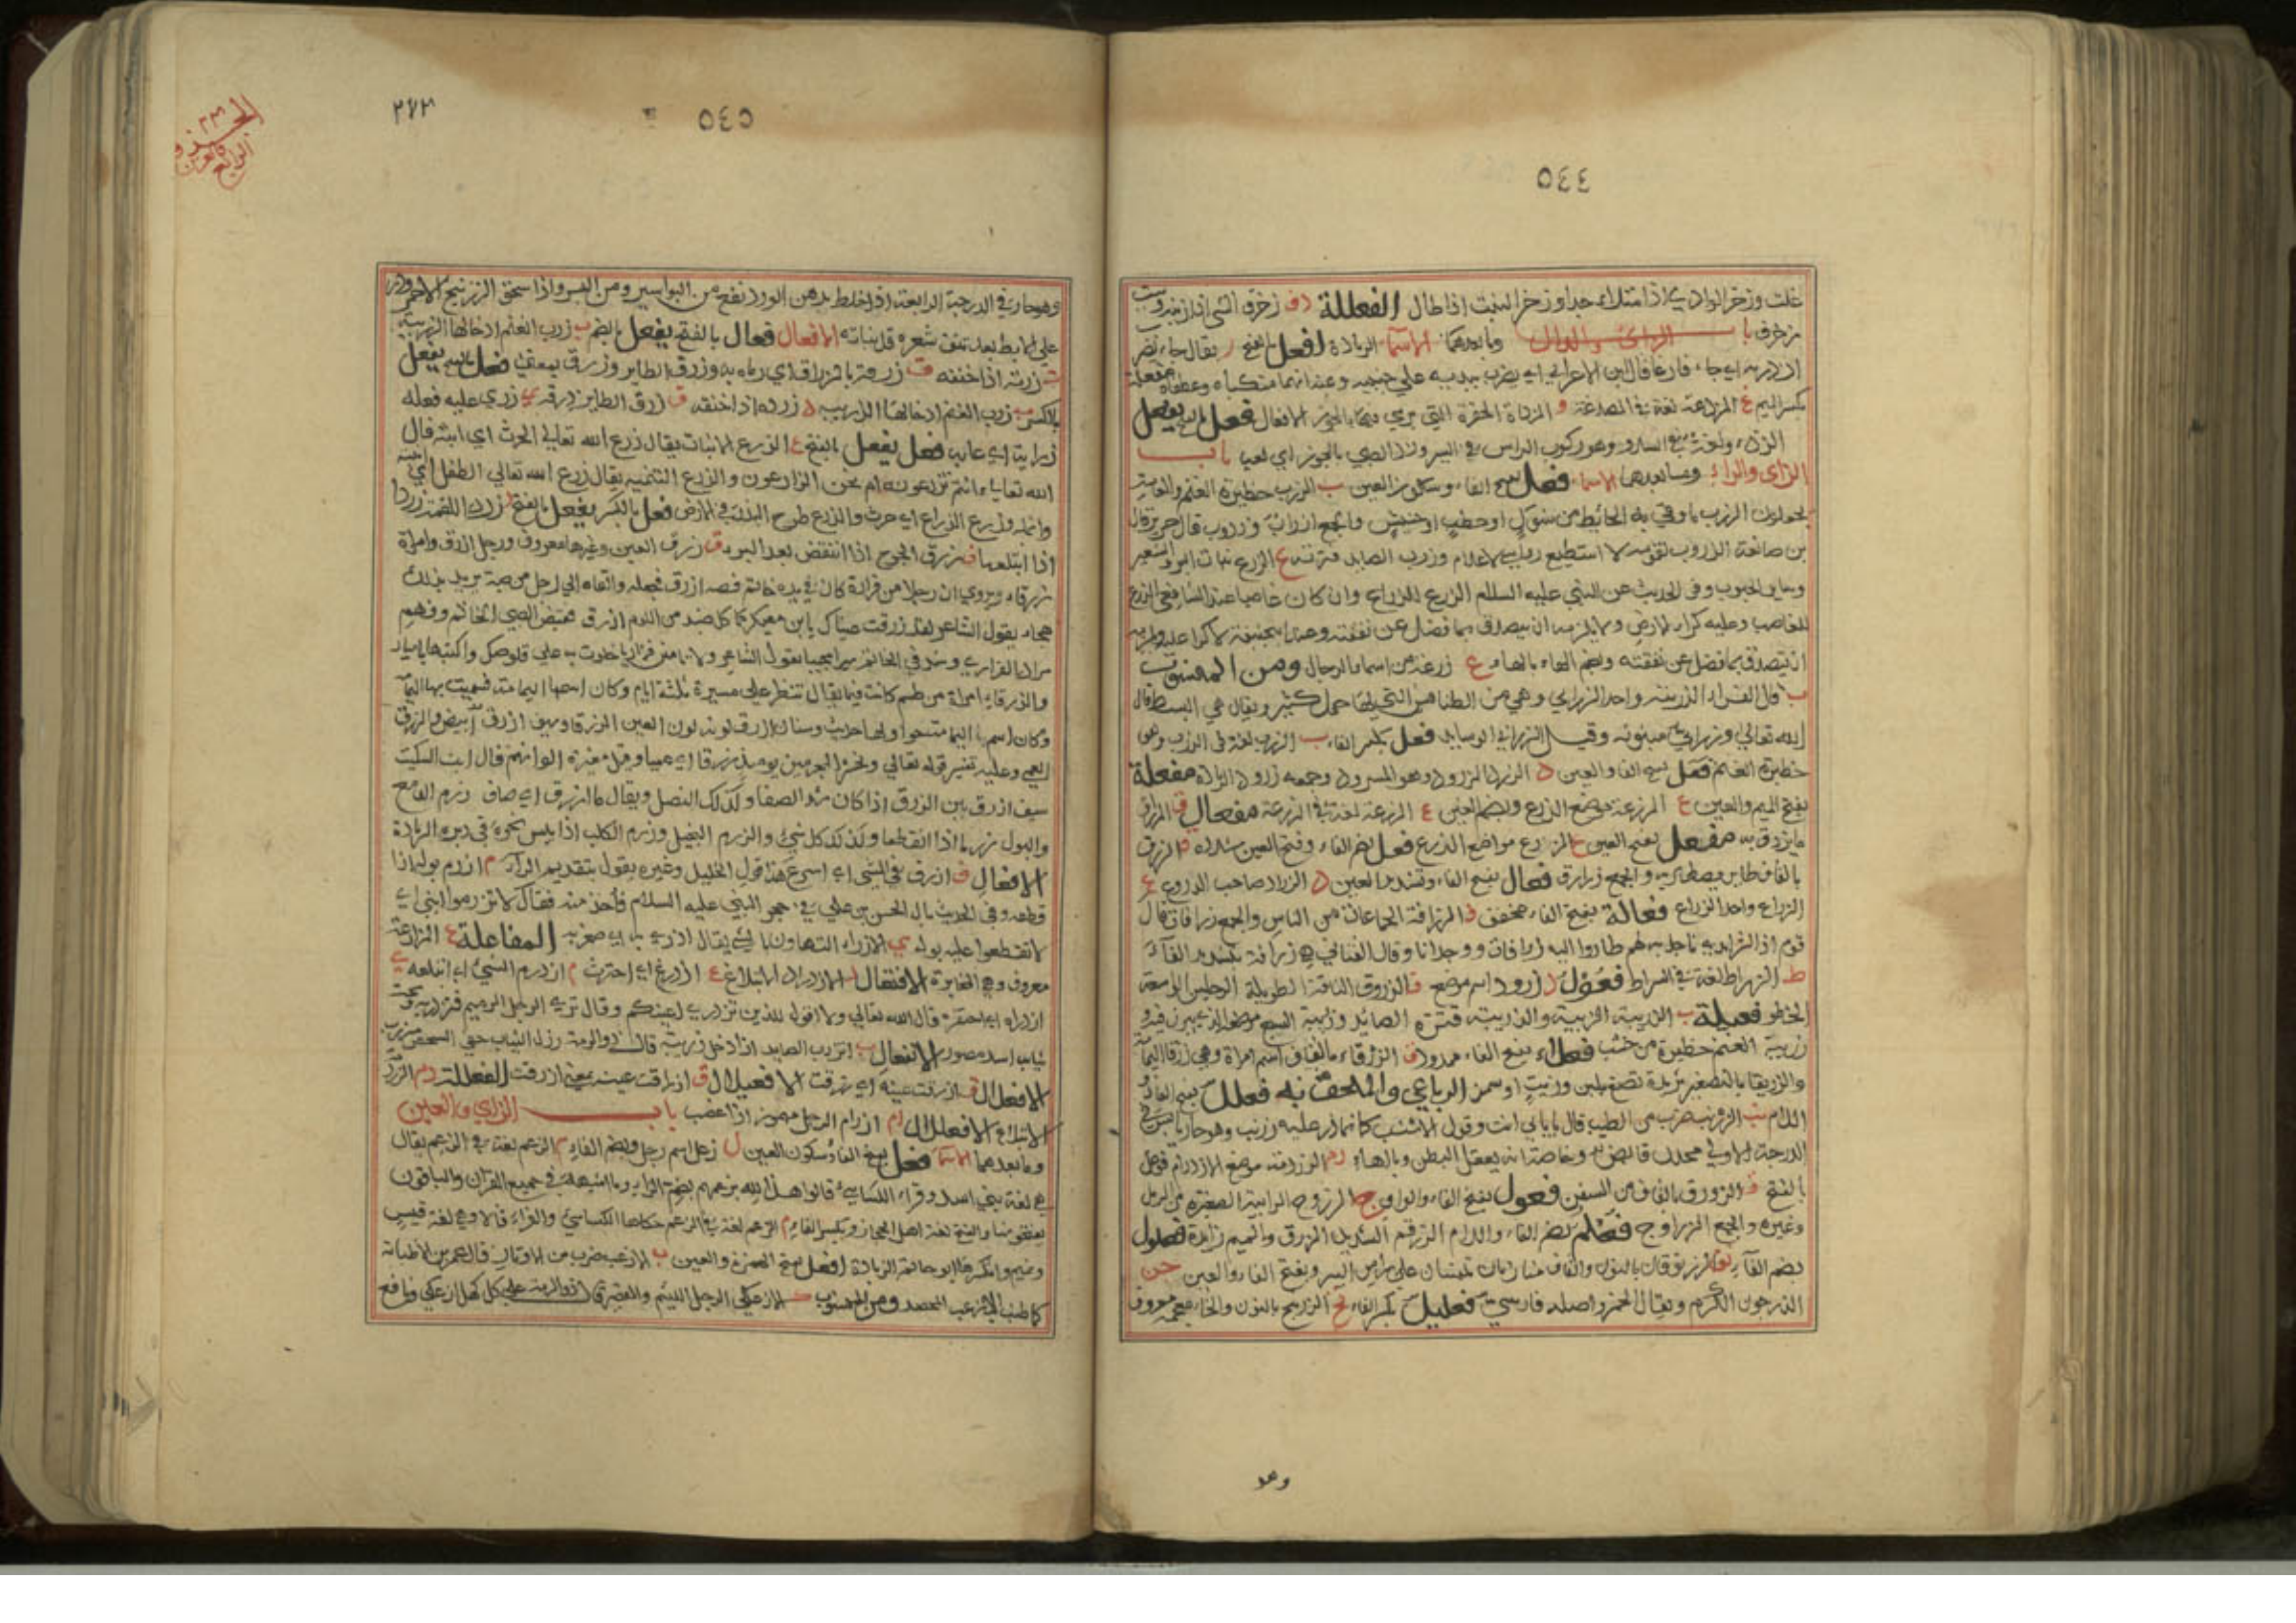 ٥٤٤
غلت وزخر الوادي اذا امتلاء جدا وزخر النبت اذا طال الفعللة ف زخرف الشي اذا زينه وبيت
مزخرف باب الزاى والدال وما بعدهما الاسماء الزيادة افعل بالفتح ر يقال جاء يضرب
ازدريه اي جاء فارغا قال ابن الاعرابي اي يضرب بيديه على جنبيه وعند انهما منكباه وعطفاه مفعلة
بكسر الميم غ المزدغة لغة في المصدغة و المزداة الحفرة التي يرمى فيها بالجوز الافعال فعل بالفتح يفعل
الزدو لغة في السدو وهو ركوب الراس في السير وزدا الصبي بالجوز اي لعب باب
الزاى والراء وما بعدها الاسماء فعل بفتح الفاء وسكون العين ب الزرب حظيرة الغنم والعامة
يقولون الزرب ما وقي به الحائط من شوك او حطب او خشيش والجمع ازراب وزروب قال جرير قال
بن صانعة الزروب لقومه لا استطيع رواسي الاعلام وزرب الصايد قترته ع الزرع نبات البر والشعير
وساير الحبوب وفي الحديث عن النبي عليه السلام الزرع للزراع وان كان غاصبا عند الشافعي الزرع
للغاصب وعليه كراء الارض ولا يلزمه ان يتصدق بما فضل عن نفقته وعند ابي حنيفة لا كرا عليه ويلزمه
ان يتصدق بما فضل عن نفقته وبضم الهاء بالهاء ع زرعة من اسماء الرجال ومن المنسوب
ب قال الفراء الزربية واحد الزرابي وهي من الطنافس التي لها خمل كثير ويقال هي البسط قال
الله تعالى وزرابي مبثوثة وقيل الزرابي الوسايد فعل بكسر الفاء ب الزرب لغة في الزرب وهي
حظيرة الغنم فعل بفتح الفاء والعين د الزرد الزرود وهو المسرود وجمعه زرود الزيادة مفعلة
بفتح الميم والعين ع المزرعة موضع الزرع وبضم العين ع المزرعة لغة في المزرعة مفعال ق المزراق
ما يزرق به مفعل بفتح العين ع المزدرع مواضع الزرع فعل بضم الفاء وفتح العين مشددة ق الزرق
بالقاف طاير يصطاد به والجمع زرارق فعال بفتح الفاء وتشديد العين د الزراد صاحب الدروع ع
الزراع واحد الزراع فعالة بفتح الفاء مخفف ف الزرافة الجماعات من الناس والجمع زرافات قال
قوم اذا الشر ابدى ناجذيه لهم طاروا اليه زرافات ووحدانا وقال القناني هي زرافة بتشديد الفاء
ط الزراط لغة في السراط فعول د زرود اسم موضع ف الزروف الناقة الطويلة الرجلين الواسعة
الخطو فعيلة ب الزريبة الزربية والزريبة قترة الصائد وزريبة السبع موضعه الذي يبرز فيه و
زريبة الغنم حظيرة من خشب فعلاء بفتح الفاء ممدود ق الزرقاء بالقاف اسم امراة وهي زرقا اليمامة
والزريقا بالتصغير ثريدة تصنع بلبن وزيت او سمن الرباعي والملحق به فعلل بفتح الفاء و
اللام ب الزرنب ضرب من الطيب قال بابابي انت وفوك الاشنب كانما ذر عليه زرنب وهو حار يابس في
الدرجة الاولى محدد قابض وخاصته انه يعقل البطن وبالهاء دم الزردمة موضع الازدرام فوعل
بالفتح ق الزورق بالقاف من السفن فعول بفتح الفاء والواو ح الزروح الرابية الصغيرة من الرمل
وغيره والجمع الزراوح فعلم بضم الفاء واللام الزرقم الشديد الزرق والميم زايدة فعلول
بضم الفاء نق الزرنوقان بالنون والقاف منارتان تبنيان على راس البير وبفتح الفاء والعين جن
الزرجون الكرم ويقال الخمر واصله فارسي فعليل بكسر الفاء نخ الزرنيخ بالنون والخاء معجمة معروف
وهو
٥٤٥
٢٧٣
وهو حار في الدرجة الرابعة اذا خلط بدهن الورد نفع من البواسير ومن القمل واذا سحق الزرنيخ الاحمر وذر
على الابط بعد نتف شعره قل نباته الافعال فعال بالفتح يفعل بالضم ب زرب الغنم ادخالها الزريبة
ت زرته اذا خنقه ق زرقه بالمزراق اي رماه به وزرق الطاير وزرق بمعنى فعل بالفتح يفعل
بالكسر ب زرب الغنم ادخالها الزريبة د زرده اذا خنقه ق زرق الطاير ذرقه ي زري عليه فعله
زراية اي عابه فعل يفعل بالفتح ع الزرع الانبات يقال زرع الله تعالى الحرث اي انبته قال
الله تعالى ءانتم تزرعونه ام نحن الزارعون والزرع التنمية يقال زرع الله تعالى الطفل اي
وانبته وزرع الزراع اي حرث والزرع طرح البذر في الارض فعل بالكسر يفعل بالفتح د زرد اللقمة زردا
اذا ابتلعها ف زرف الجرح اذا انتقض بعد البرء ق زرق العين وغيرها معروف ورجل ازرق وامراة
زرقاء ويروى ان رجلا من فزارة كان في يده خاتم فصه ازرق فجعله والقاه الى رجل من ضبة يريد بذلك
هجاه بقول الشاعر لقد زرقت عيناك يابن معكبر كما كل ضبي من اللوم ازرق فقبض الضبي الخاتم وفهم
مراد الفزاري وشد في الخاتم سيرا مجيبا بقول الشاعر ولا تامنن فزاريا خلوت به على قلوصك واكتبها باسيار
والزرقاء امراة من طسم كانت فيما يقال تنظر على مسيرة ثلثة ايام وكان اسمها اليمامة فسميت بها اليمامة
وكان اسم اليمامة جوا ولها حديث وسنان ازرق لونه لون العين الزرقاء وسيف ازرق ابيض والزرق
العمى وعليه تفسير قوله تعالى ونحشر المجرمين يومئذ زرقا اي عميا وقيل مغيرة الوانهم قال ابن السكيت
سيف ازرق بين الزرق اذا كان شديد الصفا وكذلك النصل ويقال ماء ازرق اي صاف م زرم الدمع
والبول زرما اذا انقطعا وكذلك كل شيء والزرم البخيل وزرم الكلب اذا يبس نجوه في دبره الزيادة
الافعال ف ازرف في الشي اي اسرع هذا قول الخليل وغيره يقول بتقديم الراء م ازرم بوله اذا
قطعه وفي الحديث بال الحسن بن علي في حجر النبي عليه السلام فاخذ منه فقال لا تزرموا ابني اي
لا تقطعوا عليه بوله ي الازراء التهاون بالشي يقال ازرى به اي صغر به المفاعلة ع المزارعة
معروف وهي المخابرة الافتعال د الازدراد الابتلاع ع ازدرع اي احترث م ازدرم الشيء اي ابتلعه ي
ازدراه اي احتقره قال الله تعالى ولا اقول للذين تزدري اعينكم وقال ترى الرجل الدميم فتزدريه وتحت
ثيابه اسد هصور الانفعال ب انزرب الصايد اذا دخل زريبته قال ذو الرمة رذل الثياب خفي الشخص منزرب
الافعلال ق ازرقت عينه اي زرقت الافعيلال ق ازراقت عينه بمعنى ازرقت الفعللة دم الزردمة
الابتلاع الافعلال ام ازرام الرجل مهموز اذا غضب باب الزاي والعين
وما بعدهما الاسماء فعل بفتح الفاء وسكون العين ل زعل اسم رجل وبضم الفاء م الزعم لغة في الزعم يقال
هي لغة بني اسد وقراء الكسائي قالوا هذا لله بزعمهم بضم الزاي وما اشبهه في جميع القران والباقون
بفتحونها والفتح لغة اهل الحجاز وبكسر الفاء م الزعم لغة في الزعم حكاها الكسائي والفراء قالا وهي لغة قيس
وتميم وانكرها ابو حاتم الزيادة افعل بفتح الهمزة والعين ب الازعب ضرب من الاوتار قال عمر بن الاطنابة
كاطناب الازعب المحصد ومن المنسوب ك الازعكي الرجل اللئيم والقصير قال ذو الرمة على كل كهل ازعكي ويافع